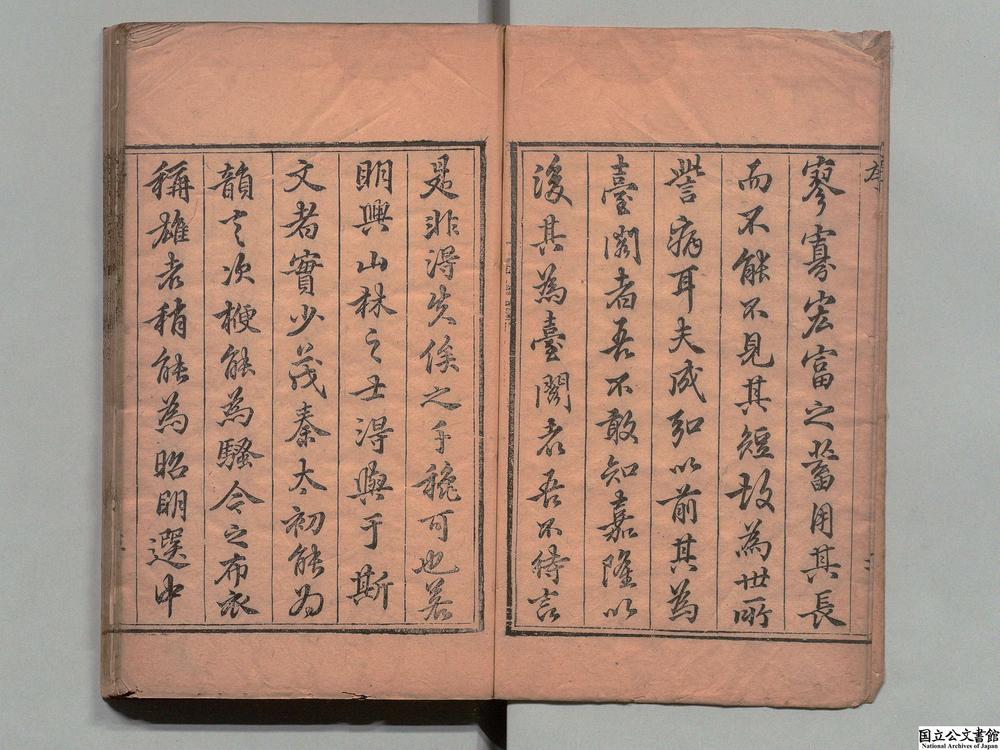 序
寥寡宏富之蓄用其長
而不能不見其短故為世所
訾病耳夫成弘以前其為
臺閣者吾不敢知嘉隆以
後其為臺閣者吾不待言
是非得失俟之千穐可也若
明興山林之士得與于斯
文者實少茂秦太初能為
韻言次楩能為騷今之布衣
稱雄者稍能為昭明選中
国立公文書館
National Archives of Japan